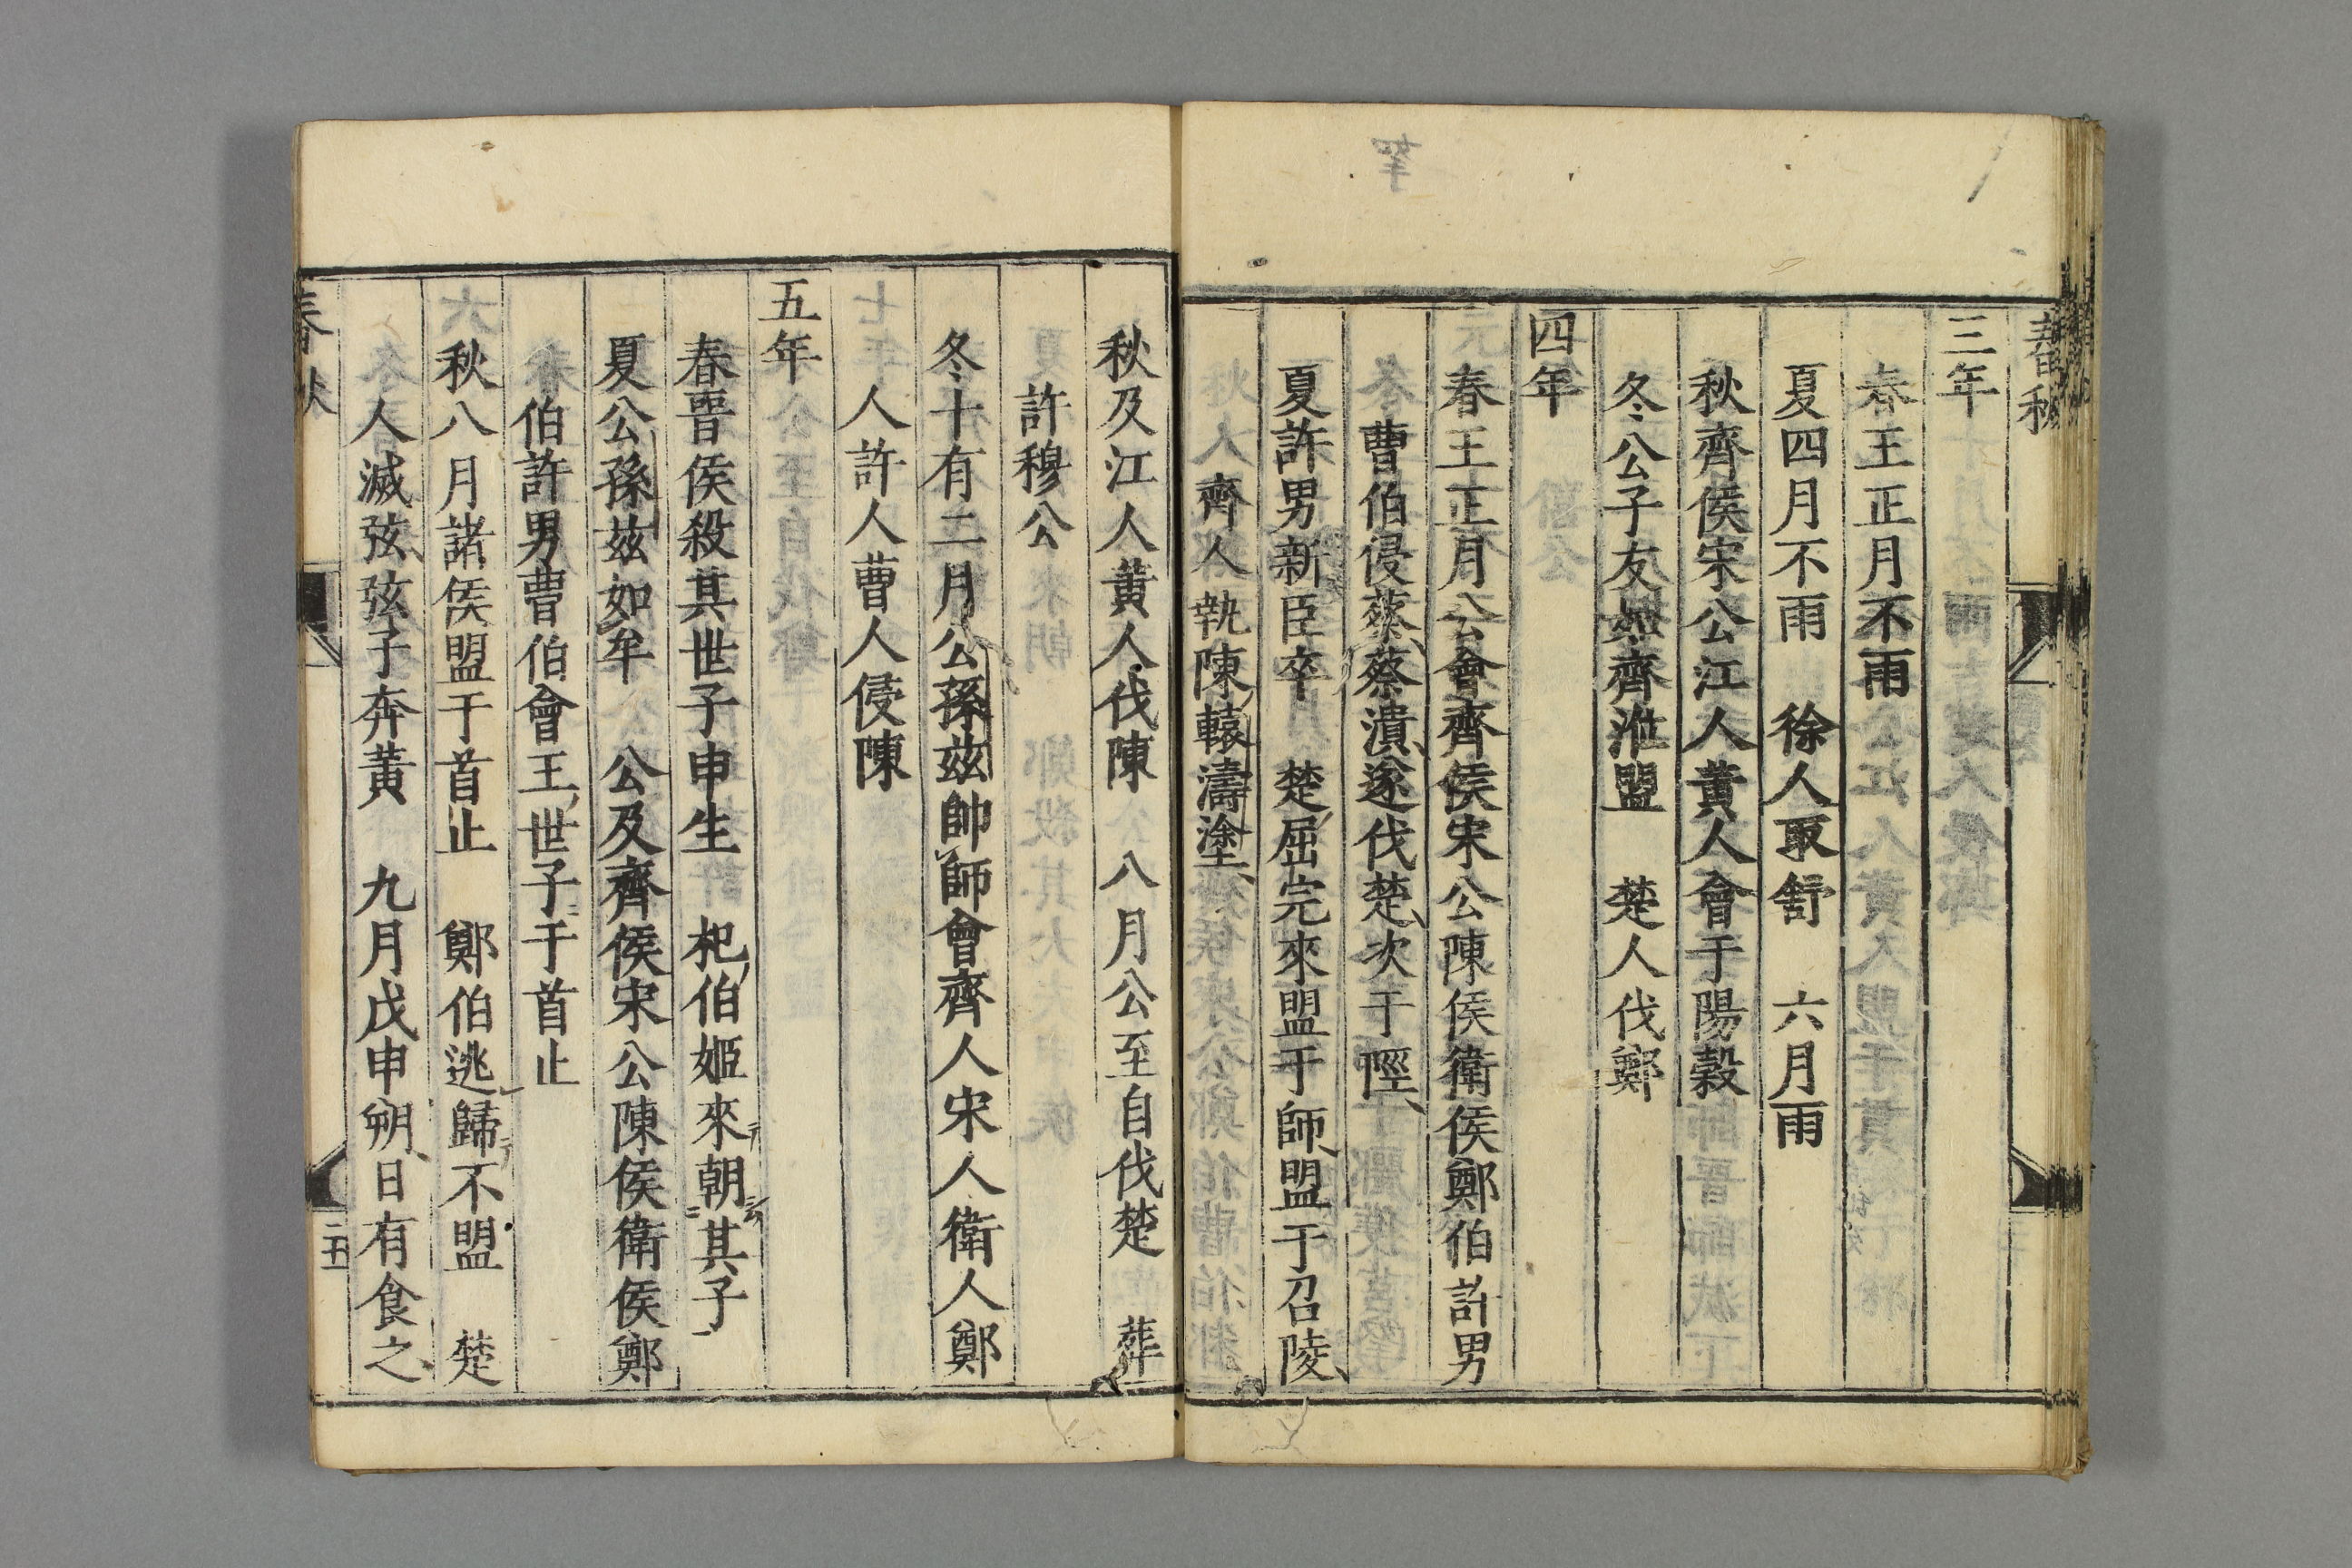 春秋
三年
春王正月不雨
夏四月不雨　徐人取舒　六月雨
秋齊侯宋公江人黃人會于陽穀
冬公子友如齊涖盟　楚人伐鄭
四年
春王正月公會齊侯宋公陳侯衛侯鄭伯許男
曹伯侵蔡蔡潰遂伐楚次于陘
夏許男新臣卒　楚屈完來盟于師盟于召陵
齊人執陳轅濤塗
秋及江人黃人伐陳　八月公至自伐楚　葬
許穆公
冬十有二月公孫茲帥師會齊人宋人衛人鄭
人許人曹人侵陳
五年
春晉侯殺其世子申生　杞伯姬來朝其子
夏公孫茲如牟　公及齊侯宋公陳侯衛侯鄭
伯許男曹伯會王世子于首止
秋八月諸侯盟于首止　鄭伯逃歸不盟　楚
人滅弦弦子奔黃　九月戊申朔日有食之
春秋
二五